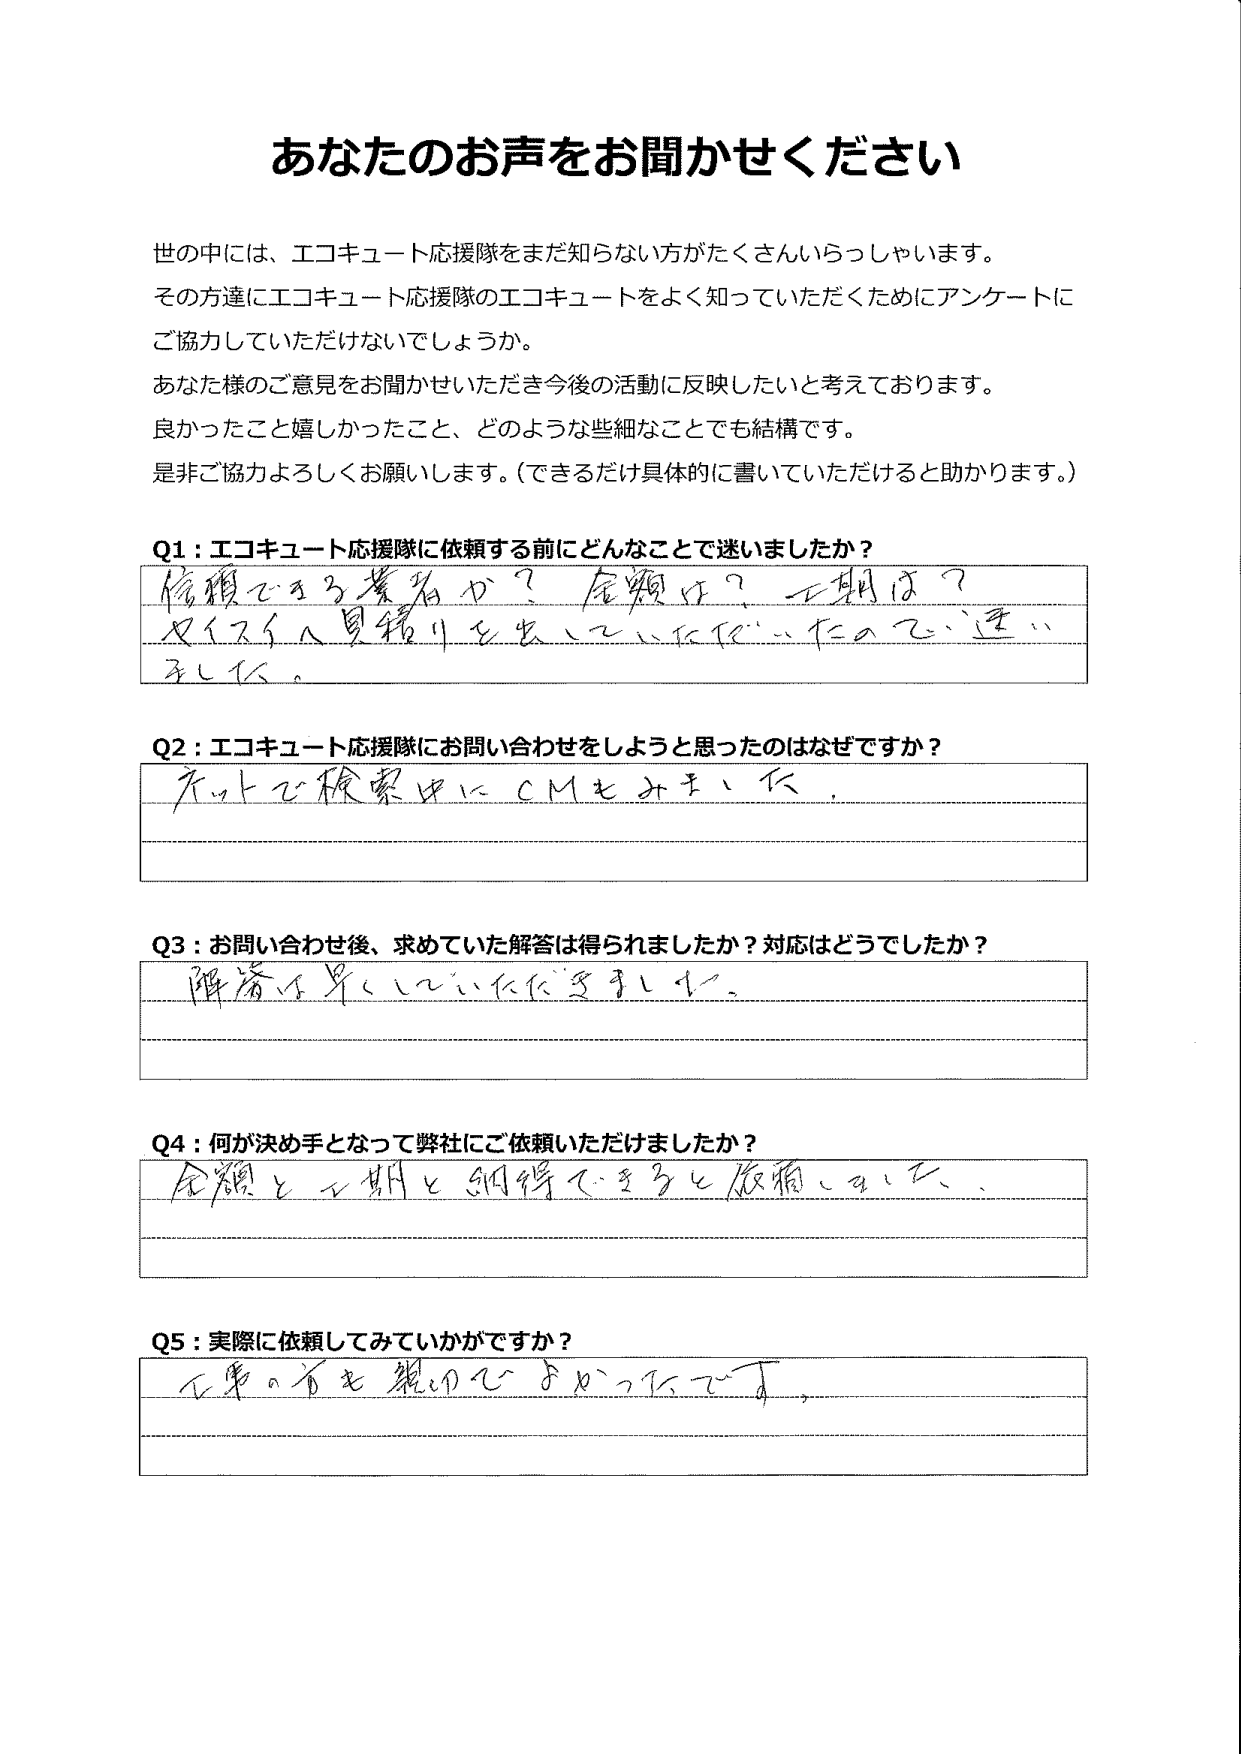 あなたのお声をお聞かせください
世の中には、エコキュート応援隊をまだ知らない方がたくさんいらっしゃいます。
その方達にエコキュート応援隊のエコキュートをよく知っていただくためにアンケートに
ご協力していただけないでしょうか。
あなた様のご意見をお聞かせいただき今後の活動に反映したいと考えております。
良かったこと嬉しかったこと、どのような些細なことでも結構です。
是非ご協力よろしくお願いします。（できるだけ具体的に書いていただけると助かります。）
Q1：エコキュート応援隊に依頼する前にどんなことで迷いましたか？
信頼できる業者か？ 金額は？ 工期は？
セイスイへ見積りを出していただいたので迷い
ました。
Q2：エコキュート応援隊にお問い合わせをしようと思ったのはなぜですか？
ネットで検索中にCMもみました.
Q3：お問い合わせ後、求めていた解答は得られましたか？対応はどうでしたか？
解答は早くしていただきました。
Q4：何が決め手となって弊社にご依頼いただけましたか？
金額と工期と納得できると依頼しました.
Q5：実際に依頼してみていかがですか？
工事の方も親切でよかったです。